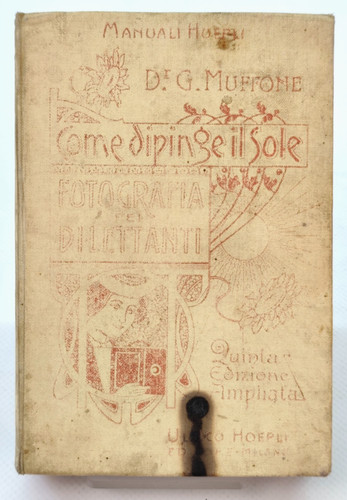 MANUALI HOEPLI
Dr. G. MUFFONE
Come dipinge il Sole
FOTOGRAFIA
PEI
DILETTANTI
Quinta
Edizione
Ampliata
ULRICO HOEPLI
MILANO